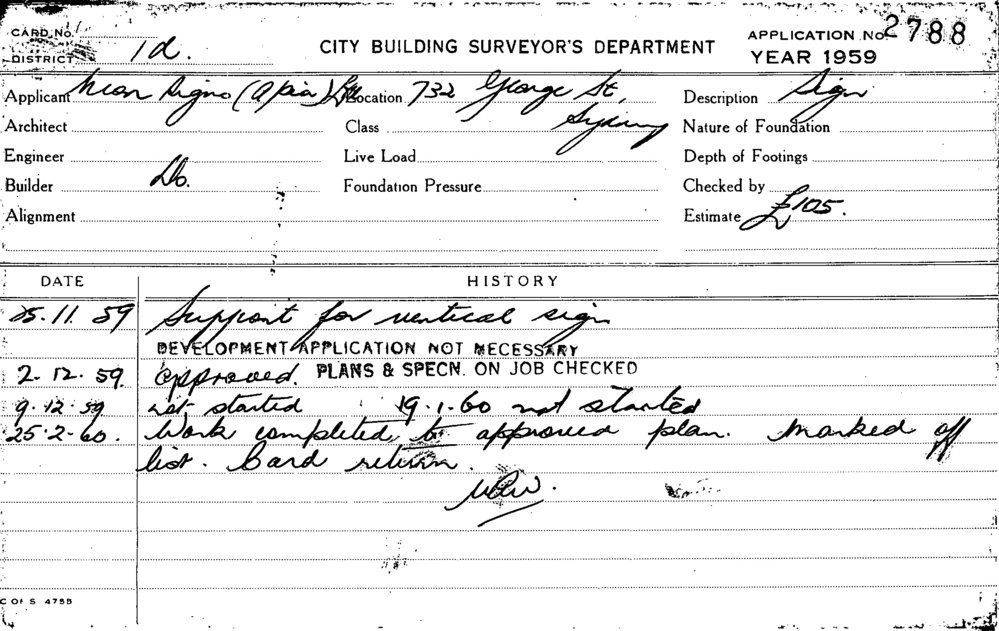 CARD No. 1d. CITY BUILDING SURVEYOR'S DEPARTMENT APPLICATION No. 2788
DISTRICT YEAR 1959
Applicant Neon Signs (A/sia) Location 732 George St, Description Sign
Architect Class Sydney Nature of Foundation
Engineer Live Load Depth of Footings
Builder Do. Foundation Pressure Checked by
Alignment Estimate £105.
DATE HISTORY
25.11.59 Support for vertical sign
DEVELOPMENT APPLICATION NOT NECESSARY
2.12.59. approved. PLANS & SPECN. ON JOB CHECKED
9.12.59 not started 19.1.60 not started
25.2.60. Work completed to approved plan. Marked off
list. Card return.
C OF S 4755